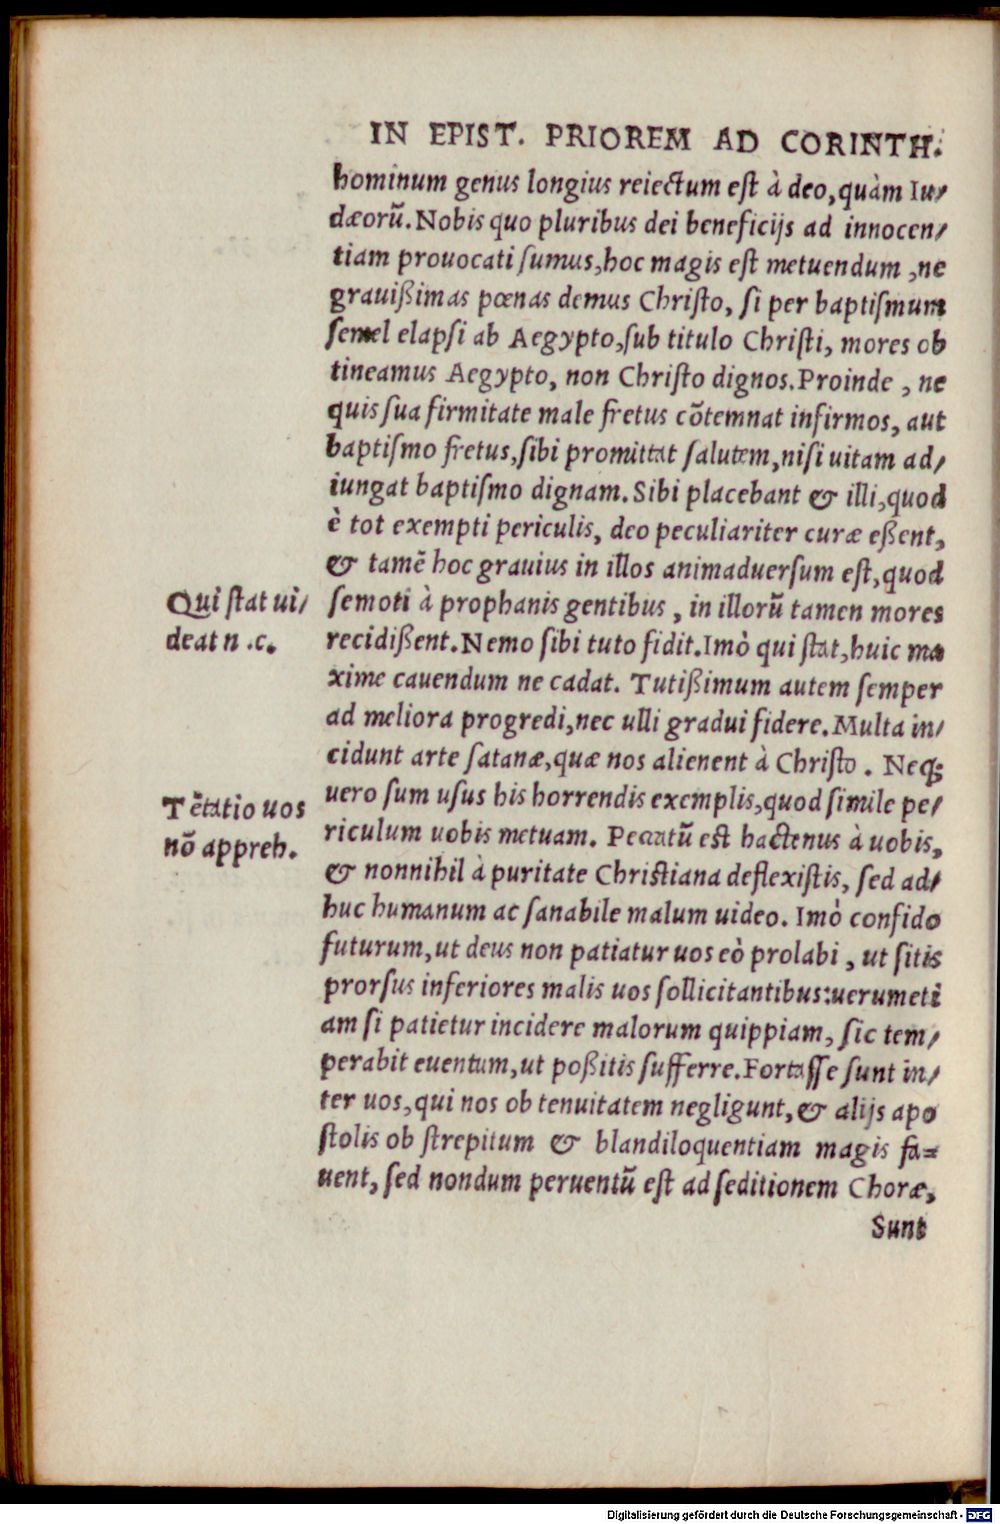 IN EPIST. PRIOREM AD CORINTH.
hominum genus longius reiectum eſt à deo, quàm Iu/
dæorũ. Nobis quo pluribus dei beneficijs ad innocen/
tiam prouocati ſumus, hoc magis eſt metuendum, ne
grauißimas pœnas demus Chriſto, ſi per baptiſmum
ſemel elapſi ab Aegypto, ſub titulo Chriſti, mores ob
tineamus Aegypto, non Chriſto dignos. Proinde, ne
quis ſua firmitate male fretus cõtemnat infirmos, aut
baptiſmo fretus, ſibi promittat ſalutem, niſi uitam ad/
iungat baptiſmo dignam. Sibi placebant & illi, quod
è tot exempti periculis, deo peculiariter curæ eßent,
& tamẽ hoc grauius in illos animaduerſum eſt, quod
Qui ſtat ui/
deat n .c.
ſemoti à prophanis gentibus, in illorũ tamen mores
recidißent. Nemo ſibi tuto fidit. Imò qui ſtat, huic ma
xime cauendum ne cadat. Tutißimum autem ſemper
ad meliora progredi, nec ulli gradui fidere. Multa in/
cidunt arte ſatanæ, quæ nos alienent à Chriſto. Neq;
Tẽtatio uos
nõ appreh.
uero ſum uſus his horrendis exemplis, quod ſimile pe/
riculum uobis metuam. Peccatũ eſt hactenus à uobis,
& nonnihil à puritate Chriſtiana deflexiſtis, ſed ad/
huc humanum ac ſanabile malum uideo. Imò confido
futurum, ut deus non patiatur uos eò prolabi, ut ſitis
prorſus inferiores malis uos ſollicitantibus: uerumeti
am ſi patietur incidere malorum quippiam, ſic tem/
perabit euentum, ut poßitis ſufferre. Fortaſſe ſunt in/
ter uos, qui nos ob tenuitatem negligunt, & alijs apo
ſtolis ob ſtrepitum & blandiloquentiam magis fa=
uent, ſed nondum peruentũ eſt ad ſeditionem Choræ,
Sunt
Digitalisierung gefördert durch die Deutsche Forschungsgemeinschaft - DFG